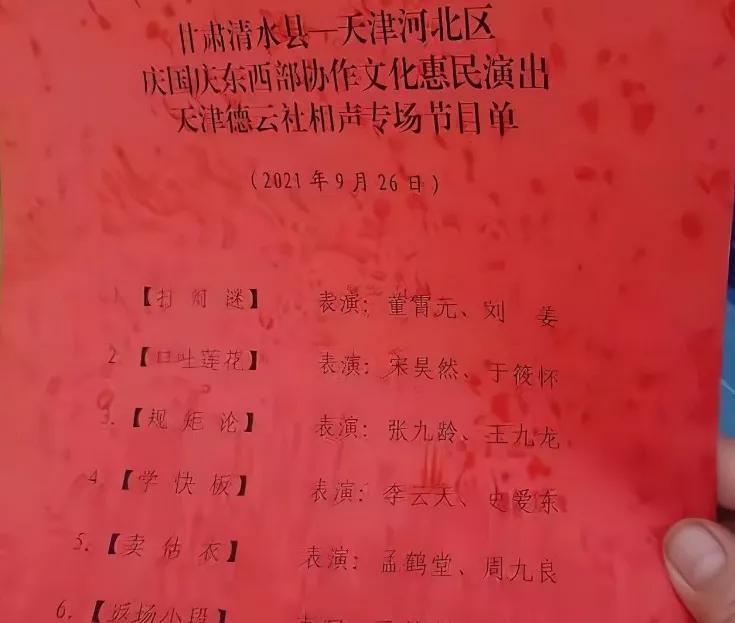 甘肃清水县—天津河北区
庆国庆东西部协作文化惠民演出
天津德云社相声专场节目单
(2021年9月26日)
1.【打哑谜】 表演：董霄元、刘 姜
2.【口吐莲花】 表演：宋昊然、于筱怀
3.【规矩论】 表演：张九龄、王九龙
4.【学快板】 表演：李云天、史爱东
5.【卖估衣】 表演：孟鹤堂、周九良
6.【返场小段】